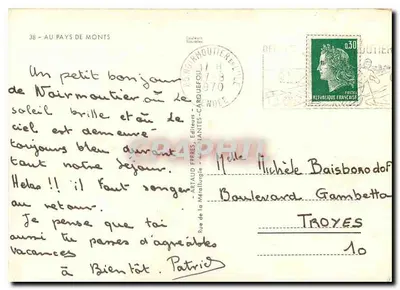 38 - AU PAYS DE MONTS
Un petit bonjour
de Noirmoutier où le
soleil brille et où le
ciel est demeuré
toujours bleu durant
tout notre séjour.
Helas!! il faut songer
au retour.
Je pense que toi
aussi tu passes d'agréables
vacances
à Bientôt. Patrick
ARTAUD FRÈRES, Editeurs
Rue de la Métallurgie
NANTES-CARQUEFOU
NOIRMOUTIER
1970
0,30
POSTES
REPUBLIQUE FRANÇAISE
Melle Michèle Baisborodof
Boulevard Gambetta
TROYES
10